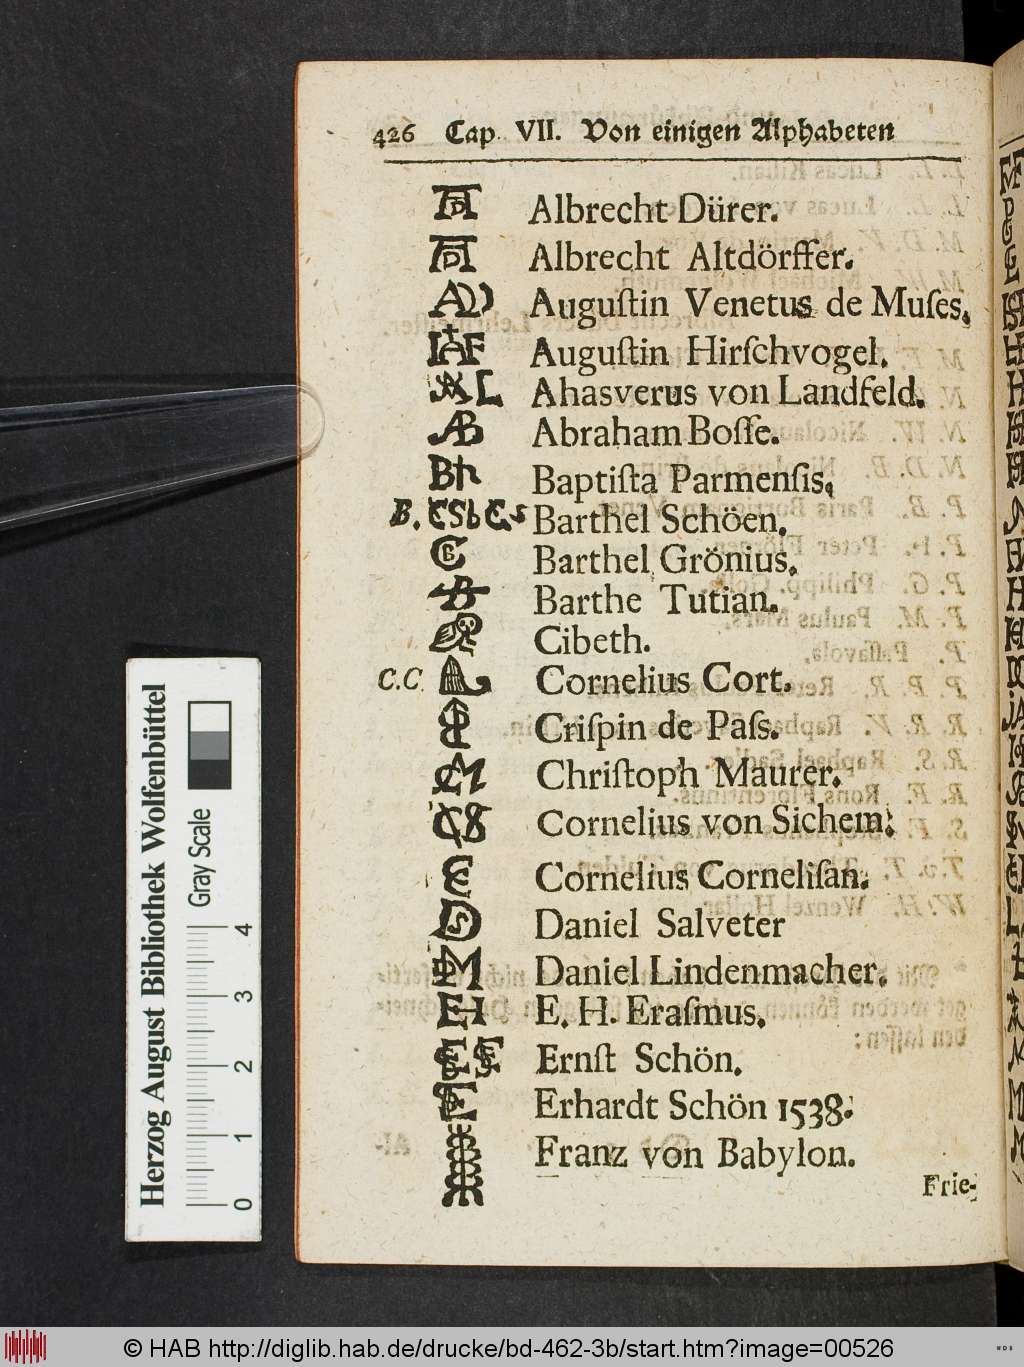 426 Cap. VII. Von einigen Alphabeten
AD Albrecht Dürer.
Albrecht Altdörffer.
Auguſtin Venetus de Muſes.
IAF Auguſtin Hirſchvogel.
AL Ahasverus von Landfeld.
AB Abraham Boſſe.
Baptiſta Parmenſis.
B. Barthel Schöen.
Barthel Grönius.
Barthe Tutian.
Cibeth.
C.C. Cornelius Cort.
Criſpin de Paſs.
Chriſtoph Maurer.
Cornelius von Sichem.
Cornelius Corneliſan.
Daniel Salveter
Daniel Lindenmacher.
EH E. H. Eraſmus.
Ernſt Schön.
Erhardt Schön 1538.
Franz von Babylon.
Frie-
Herzog August Bibliothek Wolfenbüttel
Gray Scale
0 1 2 3 4
© HAB http://diglib.hab.de/drucke/bd-462-3b/start.htm?image=00526